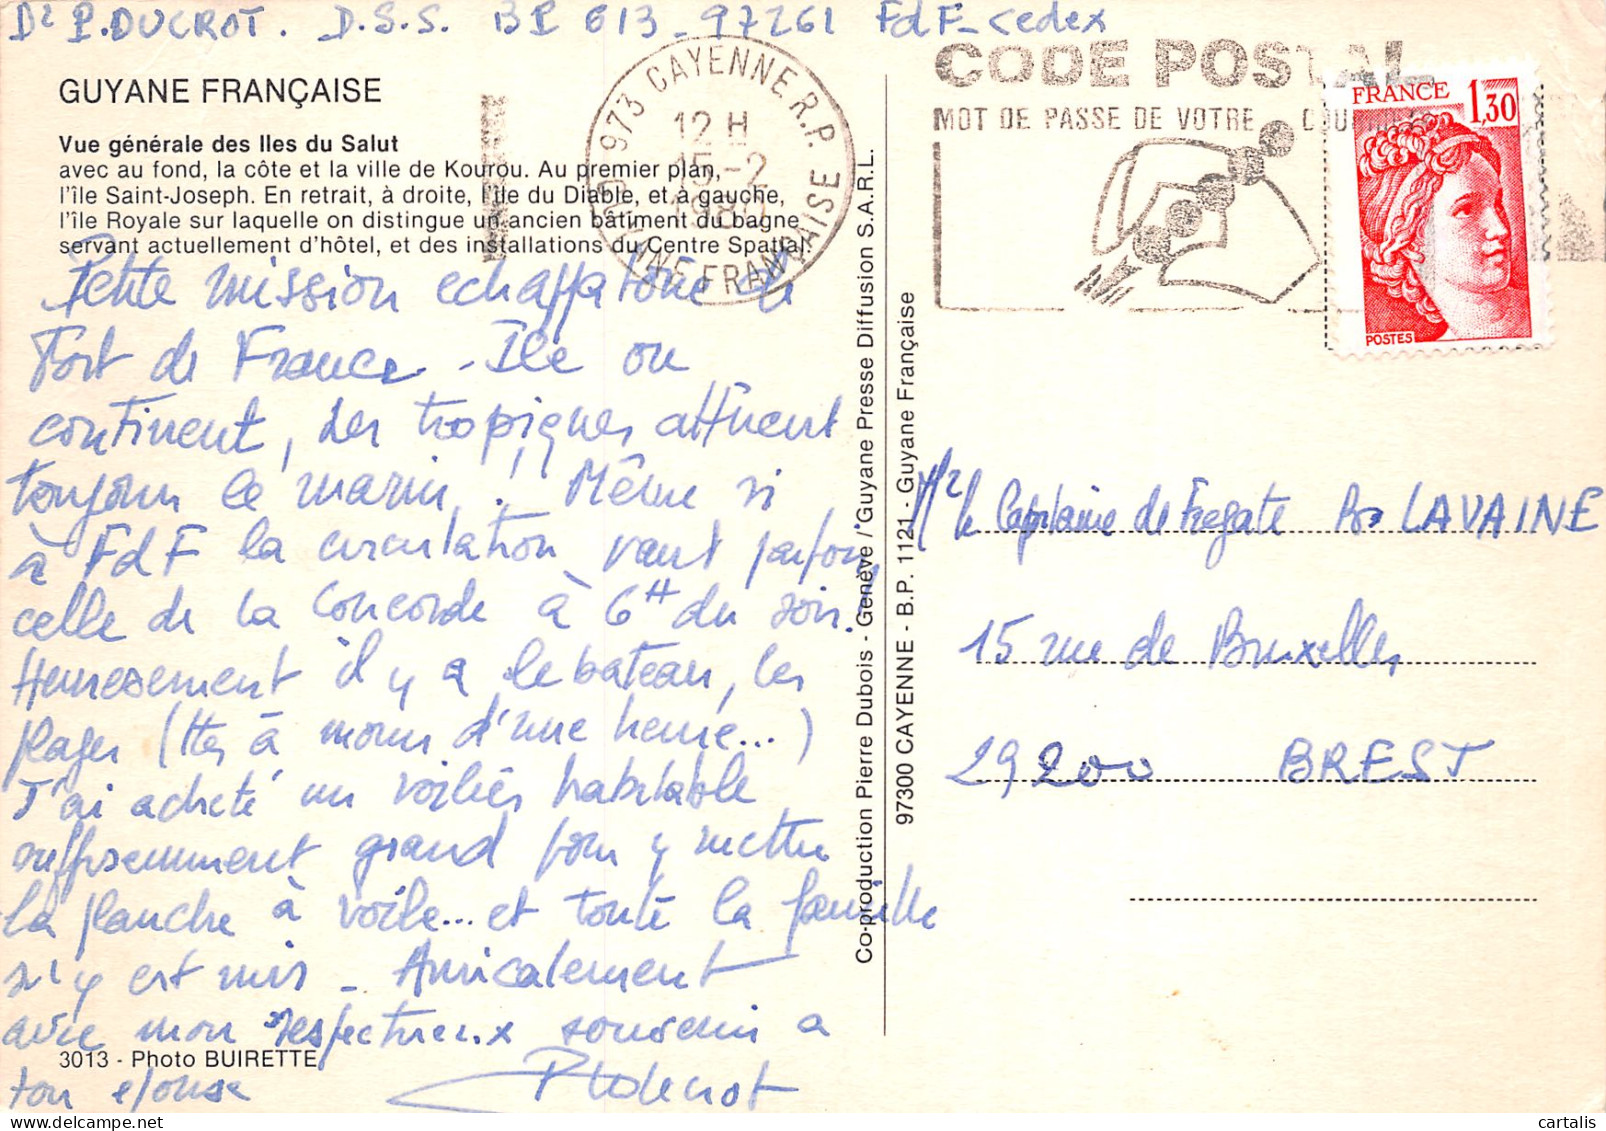 Dr P. DUCROT. D.S.S. BP 613 - 97261 FdF - Cedex
GUYANE FRANÇAISE
Vue générale des Iles du Salut
avec au fond, la côte et la ville de Kourou. Au premier plan,
l'île Saint-Joseph. En retrait, à droite, l'île du Diable, et à gauche,
l'île Royale sur laquelle on distingue un ancien bâtiment du bagne
servant actuellement d'hôtel, et des installations du Centre Spatial.
Petite mission echappatoire de
Fort de France - Ile ou
continent, les tropiques attirent
toujours le marin! Même si
à FdF la circulation vaut parfois
celle de la Concorde à 6H du soir!
Heureusement il y a le bateau, les
plages (ttes à moins d'une heure...)
J'ai acheté un voilier habitable
suffisemment grand pour y mettre
la planche à voile... et toute la famille
s'y est mis - Amicalement
avec mon respectueux souvenir a
ton epouse
PDucrot
3013 - Photo BUIRETTE
Co-production Pierre Dubois - Genève / Guyane Presse Diffusion S.A.R.L.
97300 CAYENNE - B.P. 1121 - Guyane Française
973 CAYENNE R.P.
12 H
15-2
1980
GUYANE FRANÇAISE
CODE POSTAL
MOT DE PASSE DE VOTRE COU
FRANCE 1,30
POSTES
Mr le Capitaine de Fregate LAVAINE
15 rue de Bruxelles
29200 BREST
cartalis